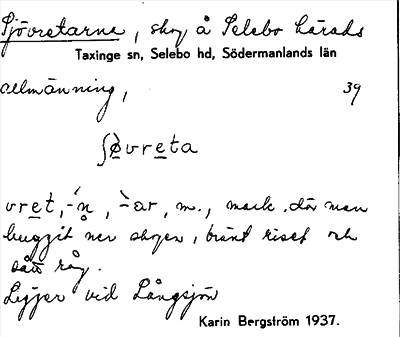 Sjövretarne, skog å Selebo härads
Taxinge sn, Selebo hd, Södermanlands län
allmänning, 39
ʃø̀vreta
vret, -n, -ar, m., mark, där man
huggit ner skogen, bränt riset och
sått råg.
Ligger vid Långsjön
Karin Bergström 1937.